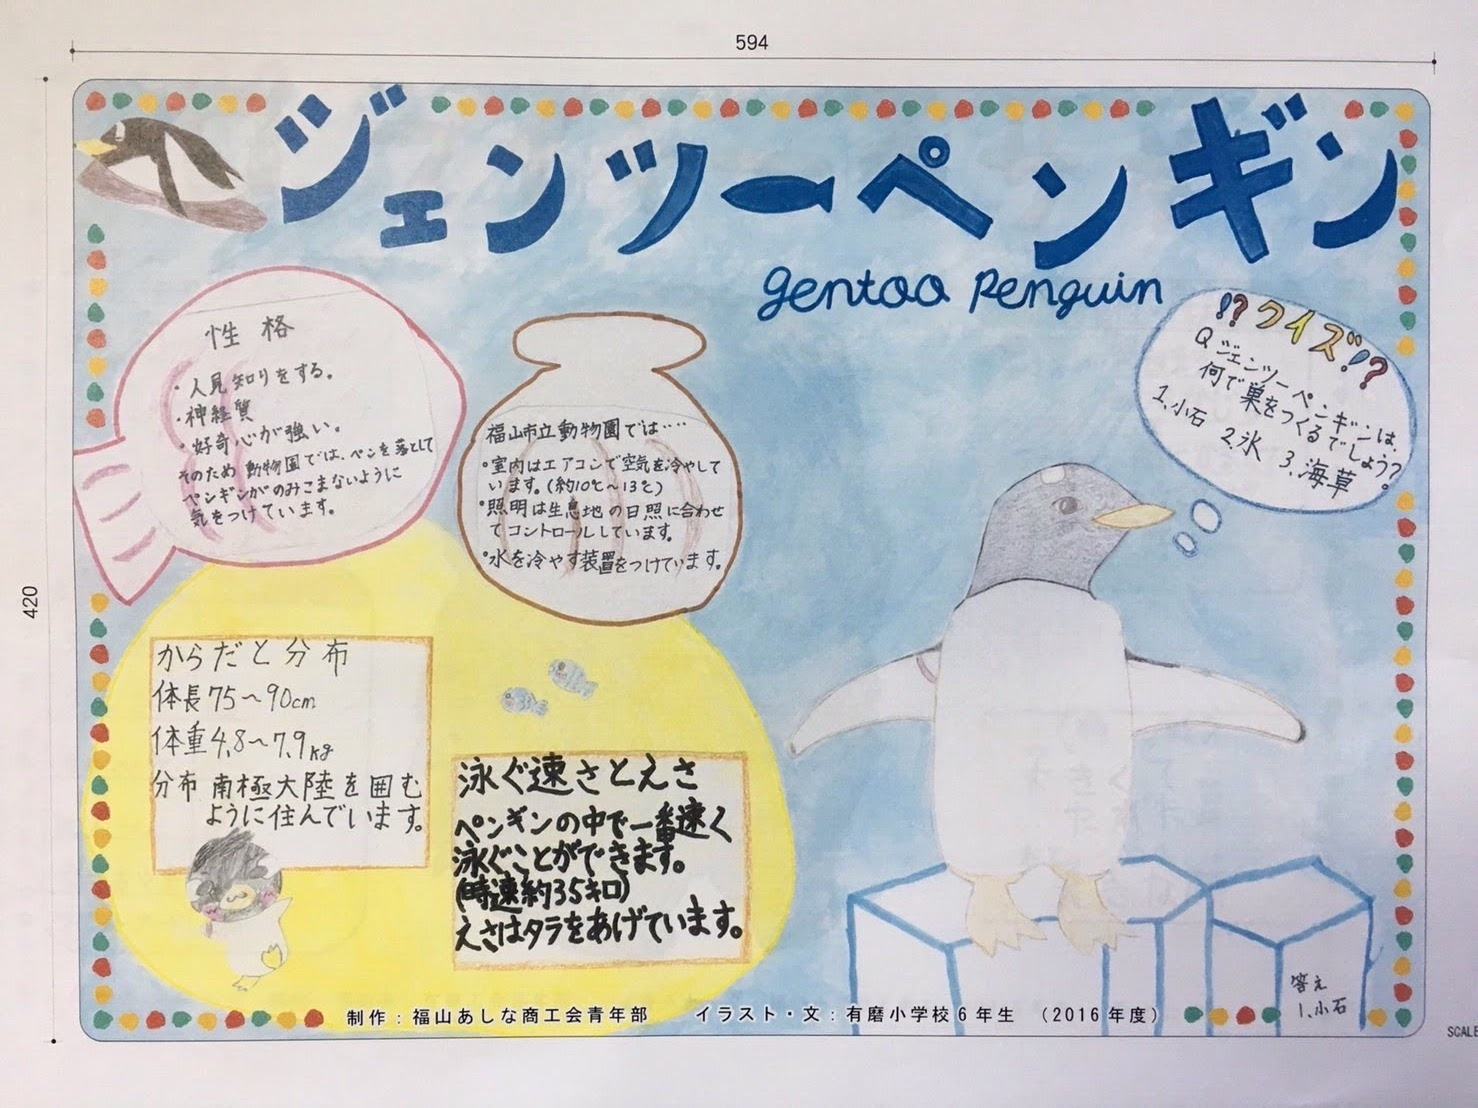 594
420
ジェンツーペンギン
gentoo Penguin
性格
・人見知りをする。
・神経質
・好奇心が強い。
そのため動物園では、ペンを落として
ペンギンがのみこまないように
気をつけています。
福山市立動物園では‥‥
・室内はエアコンで空気を冷やして
います。(約10℃～13℃)
・照明は生息地の日照に合わせ
てコントロールしています。
・水を冷やす装置をつけています。
!?クイズ!?
Qジェンツーペンギンは、
何で巣をつくるでしょう?
1、小石 2、氷 3、海草
からだと分布
体長75～90cm
体重4.8～7.9kg
分布 南極大陸を囲む
ように住んでいます。
泳ぐ速さとえさ
ペンギンの中で一番速く
泳ぐことができます。
(時速約35キロ)
えさはタラをあげています。
答え
1、小石
制作：福山あしな商工会青年部　イラスト・文：有磨小学校6年生　（2016年度）
SCALE